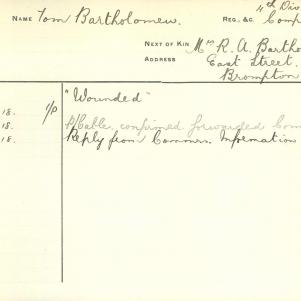 4th Div
NAME Tom Bartholomew. REG. &C. Comp
NEXT OF KIN Mrs R. A. Bartho
ADDRESS East Street.
Brompton
18. 1/P "Wounded"
18. P/Cable, confirmed forwarded Com
18. Reply from Commrs. Information